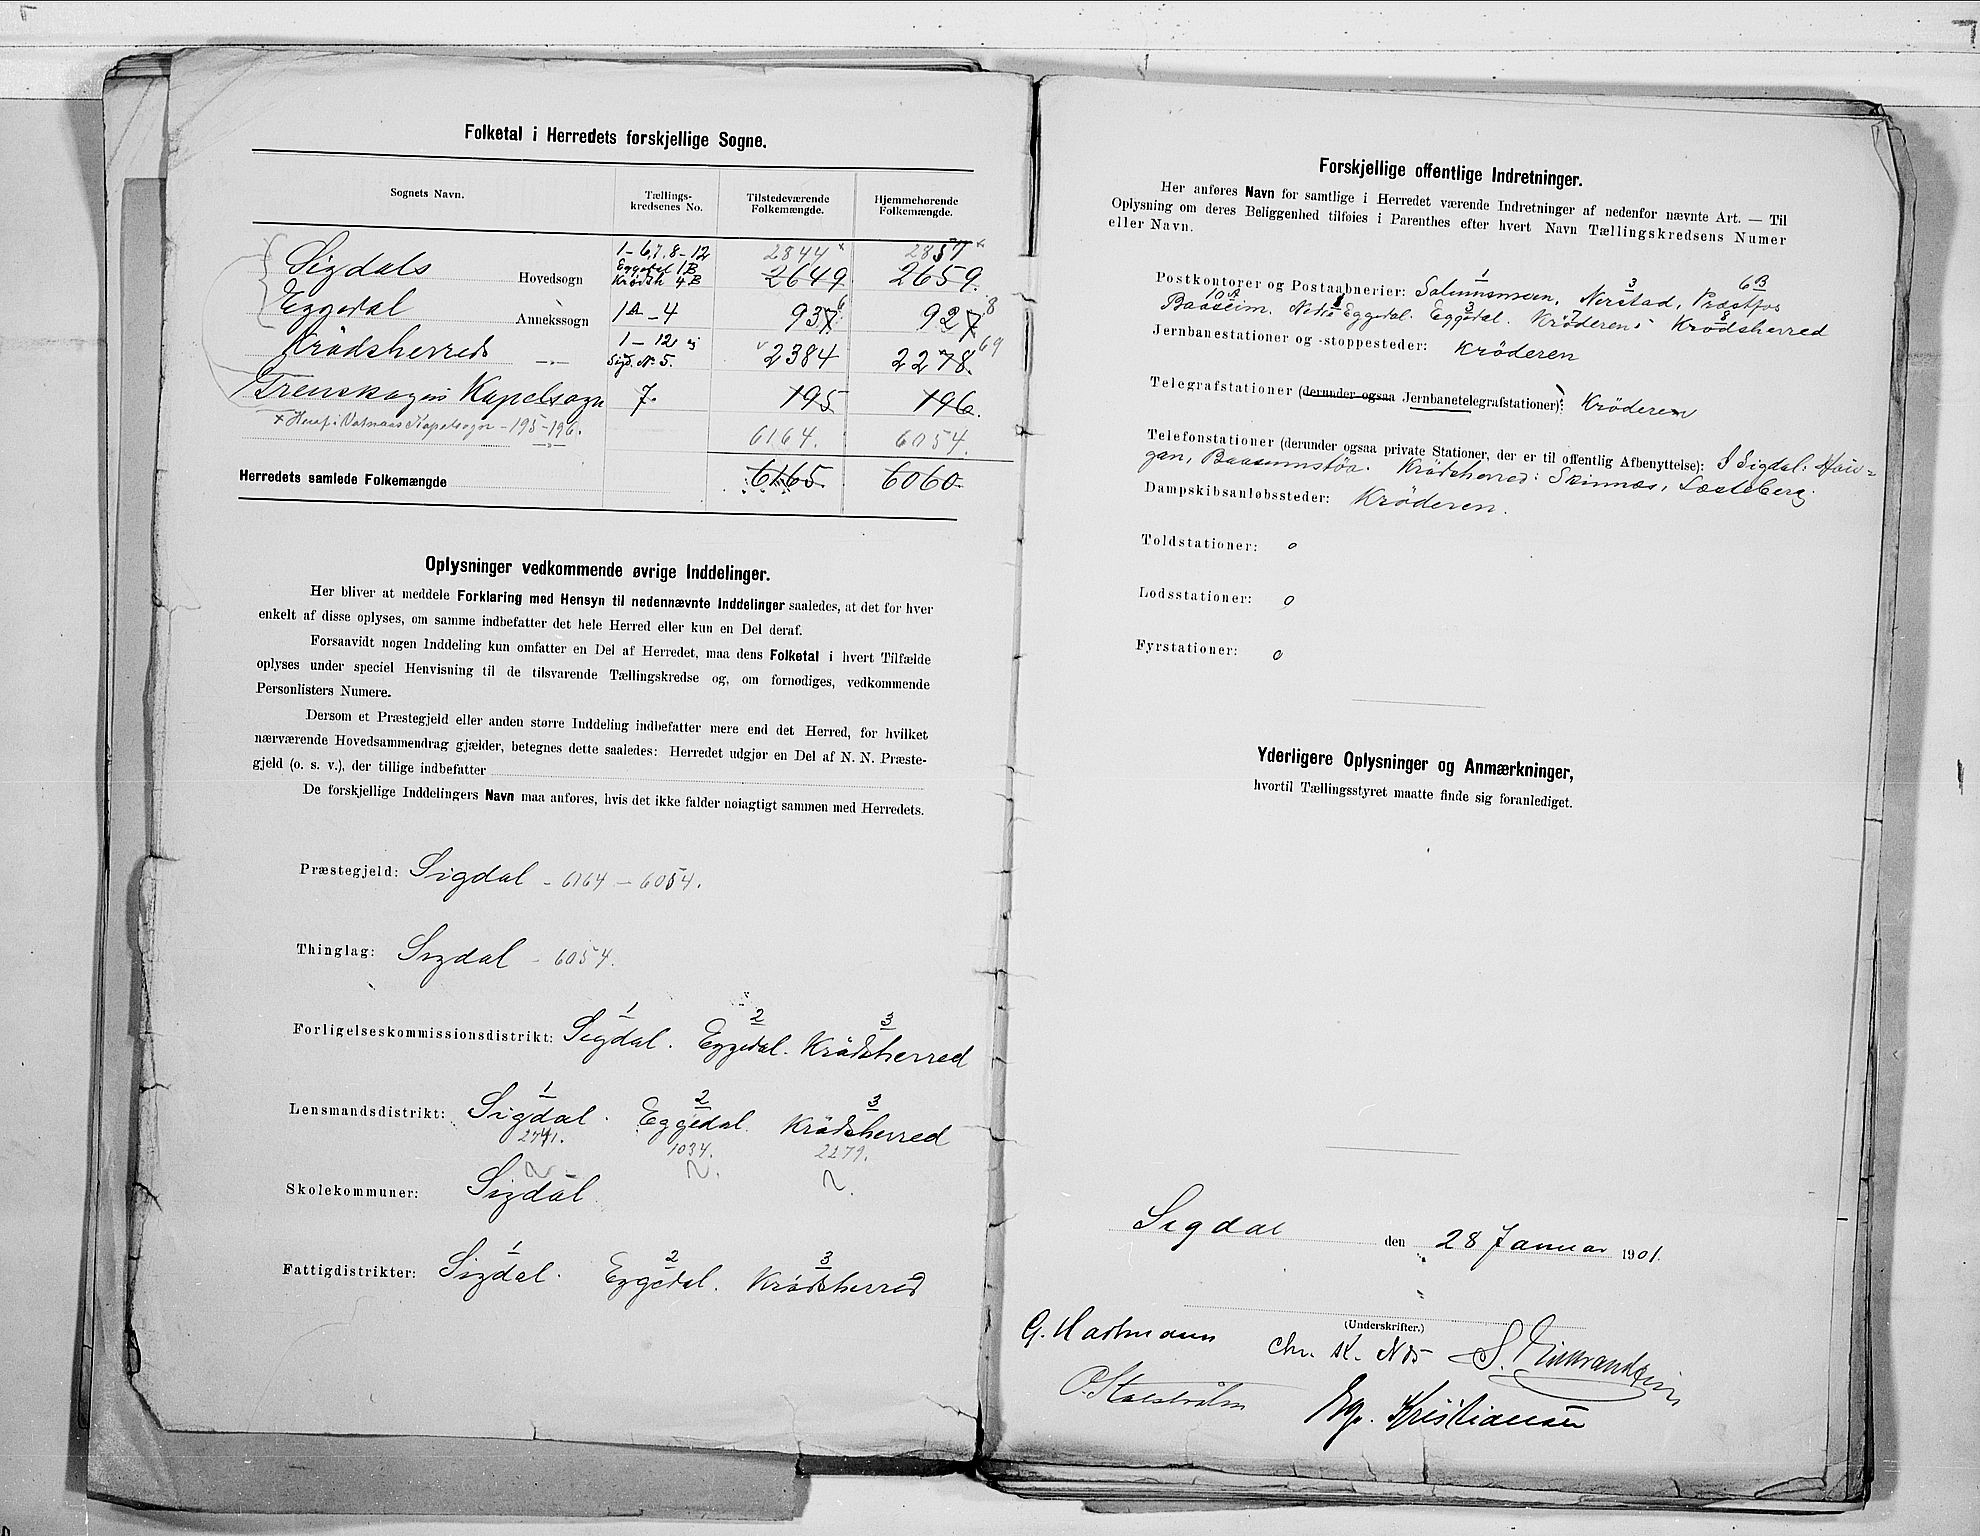 Folketal i Herredets forskjellige Sogne.
Sognets Navn.
Tællings-
kredsenes No.
Tilstedeværende
Folkemængde.
Hjemmehørende
Folkemængde.
1-6,7,8-12 2844× 2857×
Sigdals Hovedsogn Eggedal 1B Krødsh 4B 2649 2659
Eggedal Annekssogn 1A-4 937 6 927 8
Krödsherreds 1-12 Sigd. No 5. 2384 2278 69
Kapelsogn 7. 195 196.
× Heraf i Kapelsogn - 195-196.
6164. 6054.
Herredets samlede Folkemængde 6165. 6060.
Oplysninger vedkommende øvrige Inddelinger.
Her bliver at meddele Forklaring med Hensyn til nedennævnte Inddelinger saaledes, at det for hver
enkelt af disse oplyses, om samme indbefatter det hele Herred eller kun en Del deraf.
Forsaavidt nogen Inddeling kun omfatter en Del af Herredet, maa dens Folketal i hvert Tilfælde
oplyses under speciel Henvisning til de tilsvarende Tællingskredse og, om fornødiges, vedkommende
Personlisters Numere.
Dersom et Præstegjeld eller anden større Inddeling indbefatter mere end det Herred, for hvilket
nærværende Hovedsammendrag gjælder, betegnes dette saaledes: Herredet udgjør en Del af N. N. Præste-
gjeld (o. s. v.), der tillige indbefatter
De forskjellige Inddelingers Navn maa anføres, hvis det ikke falder nøiagtigt sammen med Herredets.
Præstegjeld: Sigdal - 6164 - 6054.
Thinglag: Sigdal - 6054.
1 2 3
Forligelseskommissionsdistrikt: Sigdal. Eggedal. Krödsherred
1 2 3
Lensmandsdistrikt: Sigdal. Eggedal. Krödsherred
2741. 1034. 2279.
Skolekommuner: Sigdal
1 2 3
Fattigdistrikter: Sigdal. Eggedal. Krödsherred
Forskjellige offentlige Indretninger.
Her anføres Navn for samtlige i Herredet værende Indretninger af nedenfor nævnte Art. — Til
Oplysning om deres Beliggenhed tilføies i Parenthes efter hvert Navn Tællingskredsens Numer
eller Navn.
1 3 6B
Postkontorer og Postaabnerier: Solumsmoen, Nerstad, Præstfos
10A 1 3 7 8
Baaseim. Nedre Eggedal. Eggedal. Kröderen. Krödsherred
Jernbanestationer og -stoppesteder: Kröderen
Telegrafstationer (derunder ogsaa Jernbanetelegrafstationer): Kröderen
Telefonstationer (derunder ogsaa private Stationer, der er til offentlig Afbenyttelse): I Sigdal: Hau=
gan, Krödsherred: Skinnes,
Dampskibsanløbssteder: Kröderen.
Toldstationer: o
Lodsstationer: o
Fyrstationer: o
Yderligere Oplysninger og Anmærkninger,
hvortil Tællingsstyret maatte finde sig foranlediget.
Sigdal den 28 Januar 1901.
(Underskrifter.)
G. Hartmann Chr. K.
Kristiansen